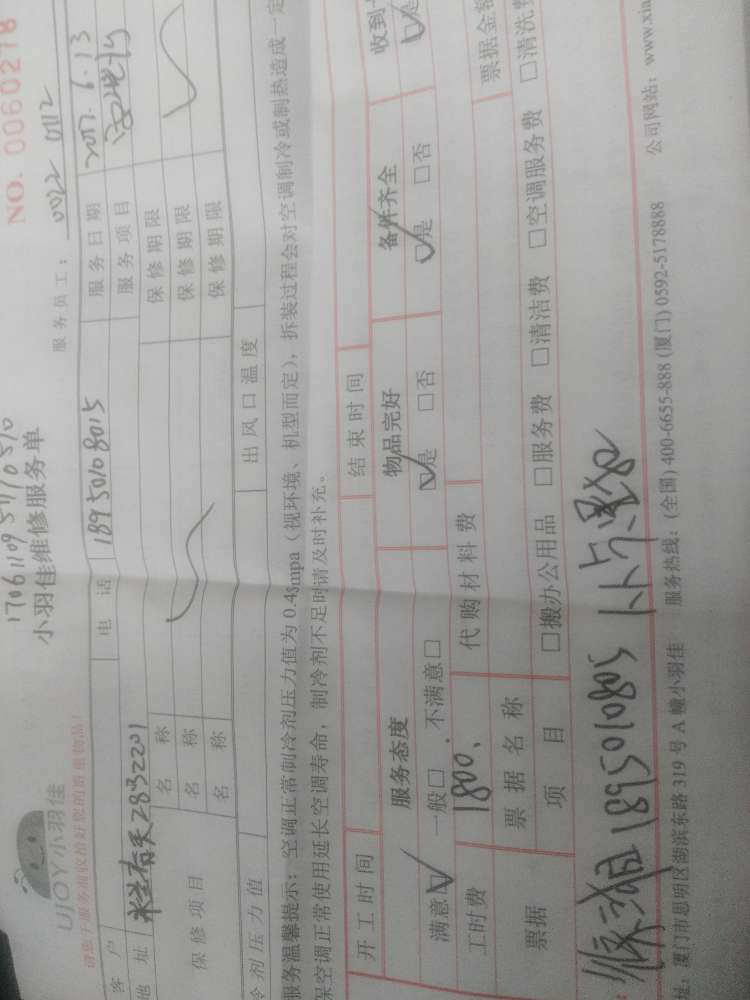 NO. 0060278
UJOY小羽佳
小羽佳维修服务单
服务员工： 0022 0112
请您于服务前收拾好您的贵重物品！
客 户 电 话 18950108015 服务日期 2017.6.13
地 址 2832201 服务项目
保修项目 名 称 保修期限
名 称 保修期限
名 称 保修期限
冷剂压力值 出风口温度
服务温馨提示：空调正常制冷剂压力值为0.45mpa（视环境、机型而定），拆装过程会对空调制冷或制热造成一定
保空调正常使用延长空调寿命，制冷剂不足时请及时补充。
开工时间 结束时间
服务态度 物品完好 备件齐全 收到
满意☑ 一般□ 不满意□ ☑是 □否 ☑是 □否
工时费 1800 代购材料费 票据金额
票据 票据名称
项 目 □搬办公用品 □服务费 □清洁费 □空调服务费 □清洗费
1895010805
址：厦门市思明区湖滨东路319号A幢小羽佳 服务热线：(全国) 400-6655-888 (厦门) 0592-5178888 公司网站：www.xia